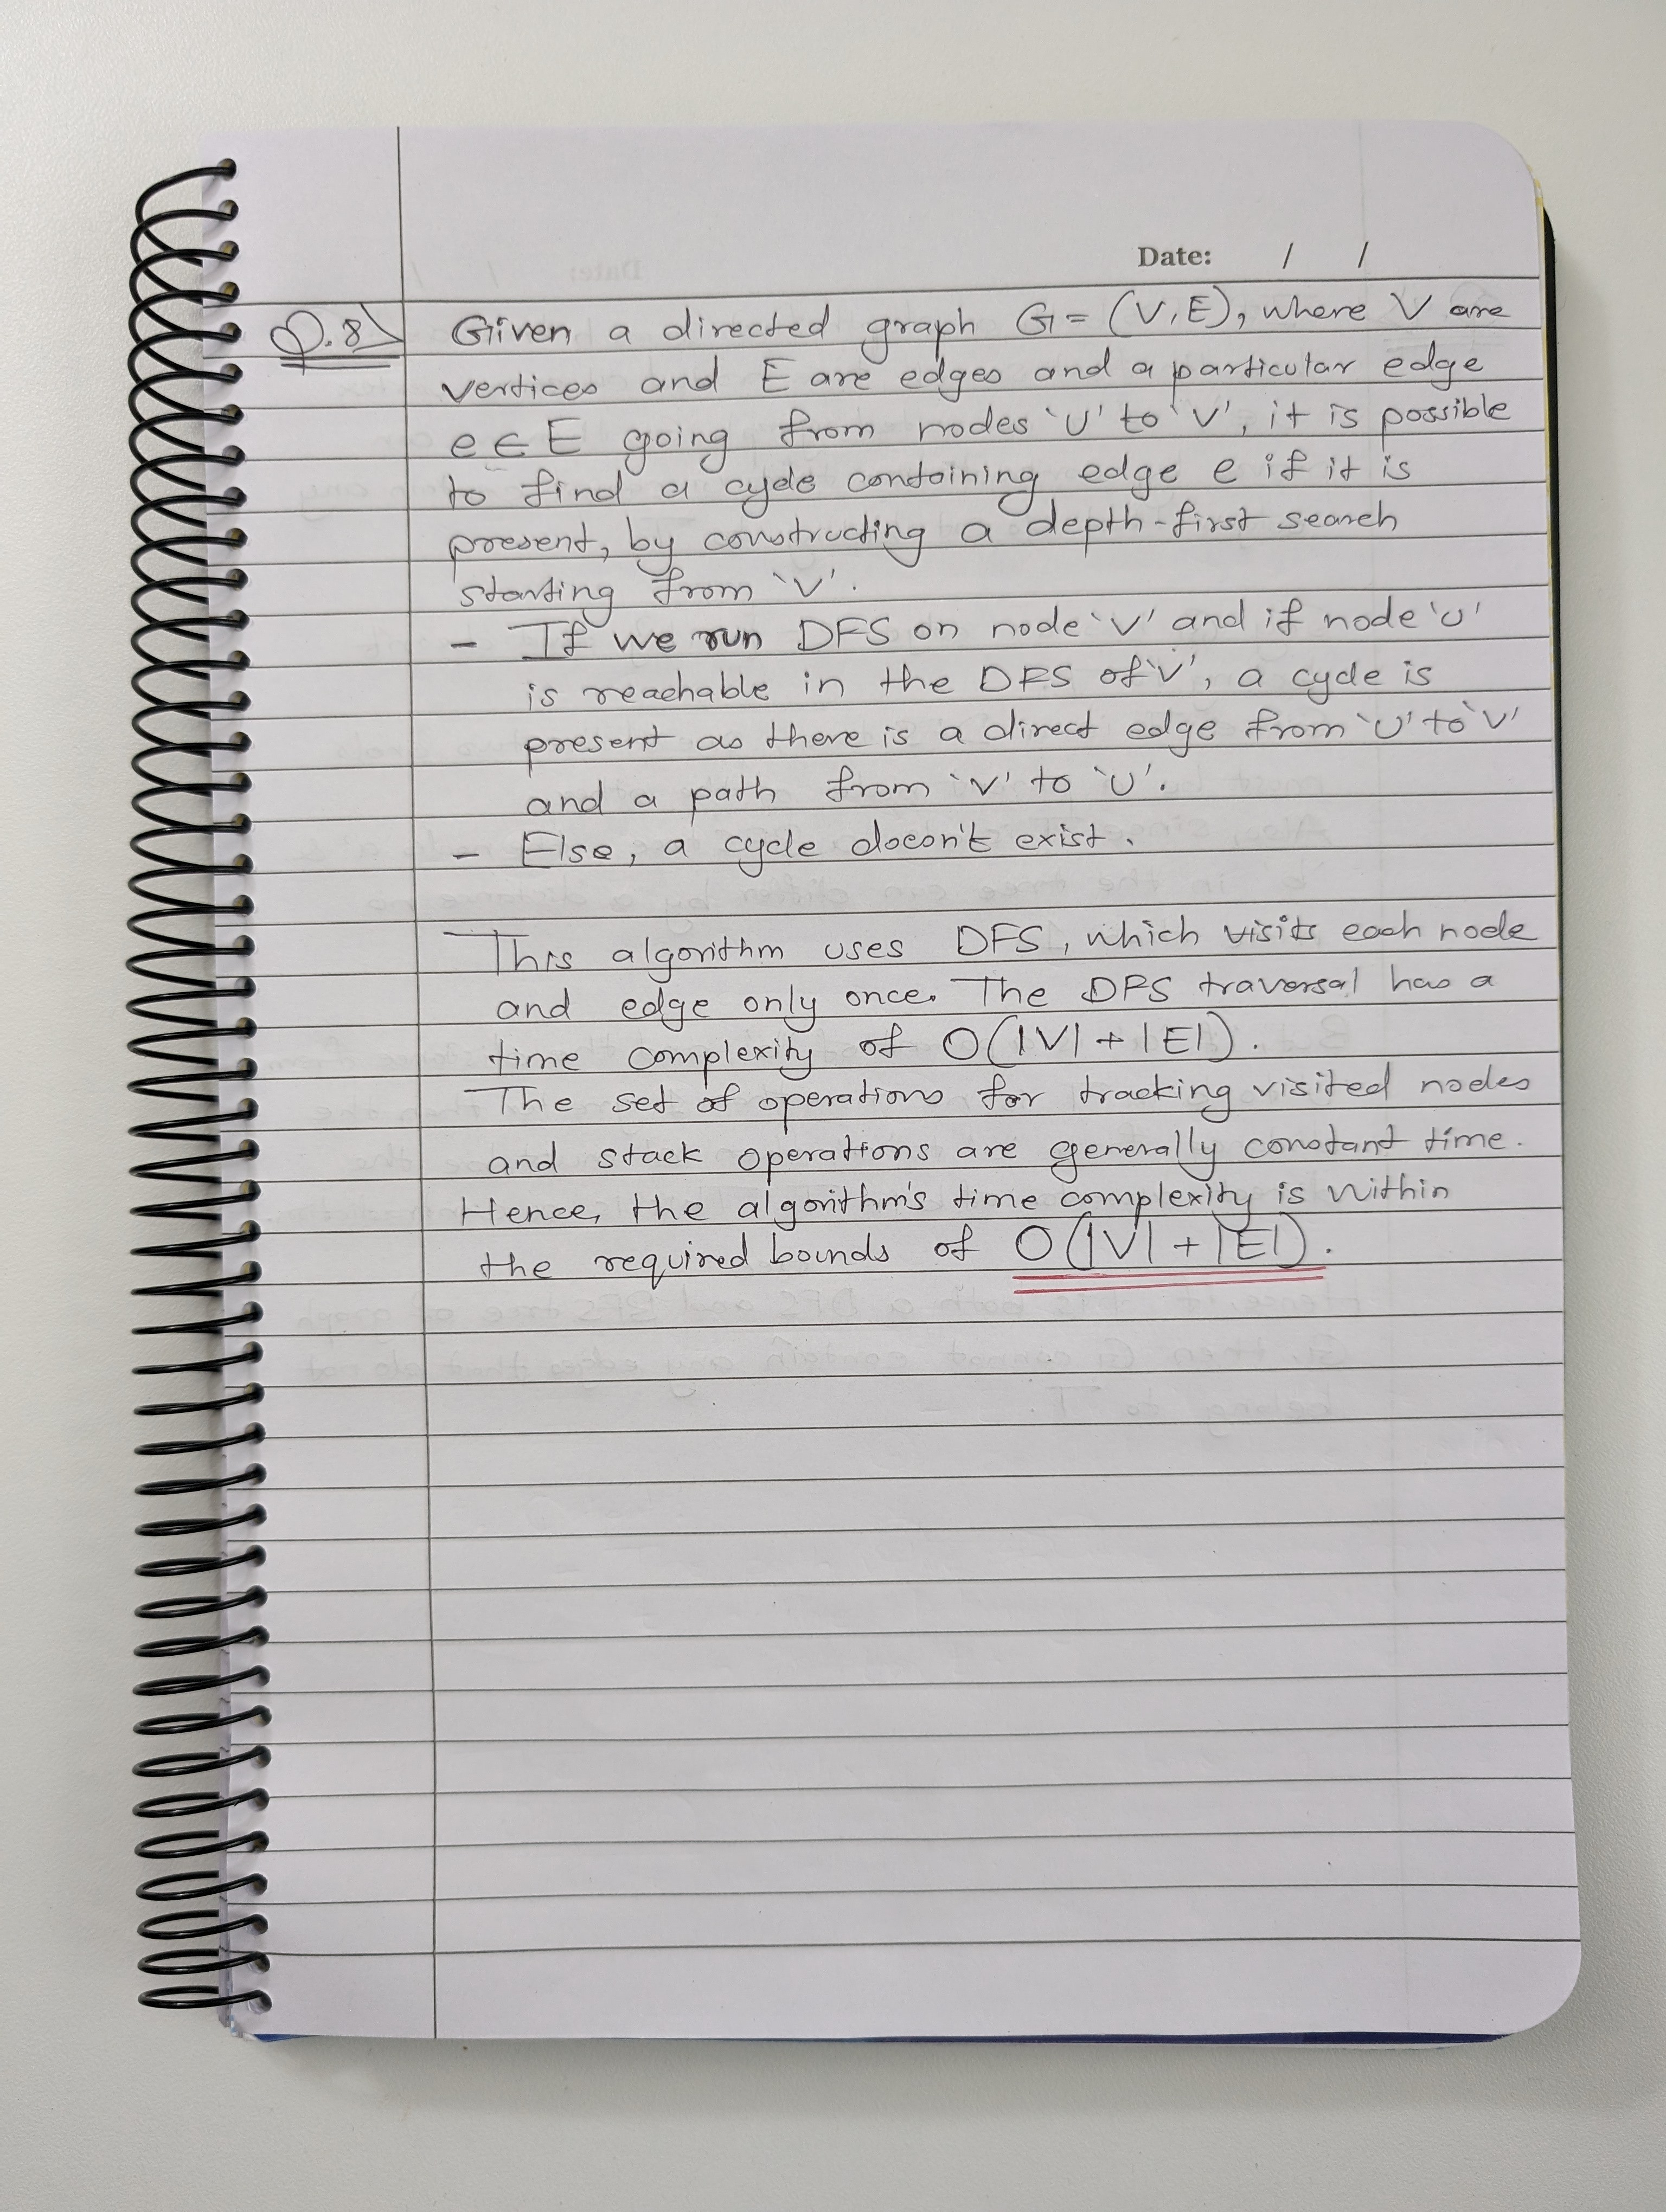 Date: / /
Q.8) Given a directed graph G = (V, E), where V are
vertices and E are edges and a particular edge
e ∈ E going from nodes 'U' to 'V', it is possible
to find a cycle containing edge e if it is
present, by constructing a depth-first search
starting from 'V'.
- If we run DFS on node 'V' and if node 'U'
is reachable in the DFS of 'V', a cycle is
present as there is a direct edge from 'U' to 'V'
and a path from 'V' to 'U'.
- Else, a cycle doesn't exist.
This algorithm uses DFS, which visits each node
and edge only once. The DFS traversal has a
time complexity of O(|V| + |E|).
The set of operations for tracking visited nodes
and stack operations are generally constant time.
Hence, the algorithm's time complexity is within
the required bounds of O(|V| + |E|).